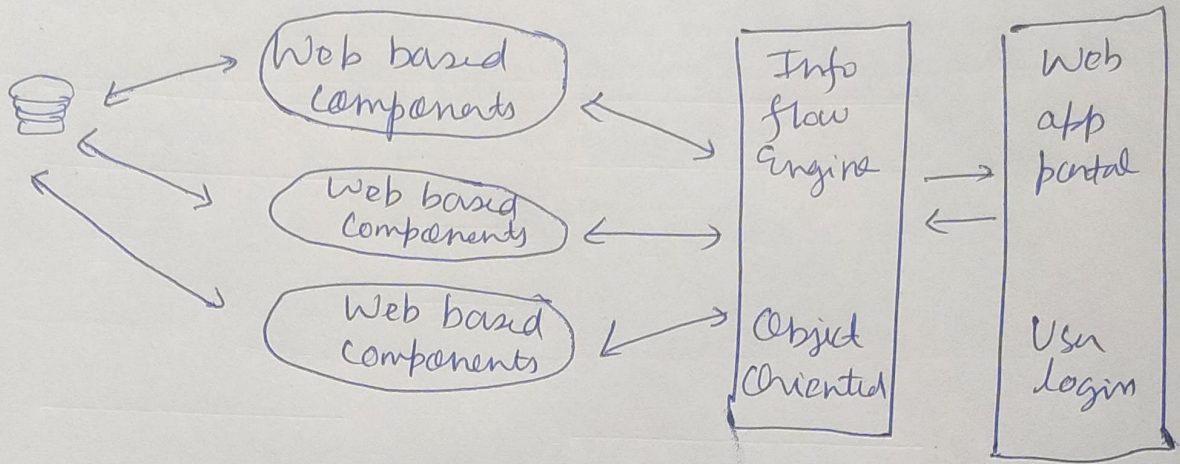 Web based
components
Web based
components
Web based
components
Info
flow
Engine
Object
Oriented
Web
app
portal
User
login